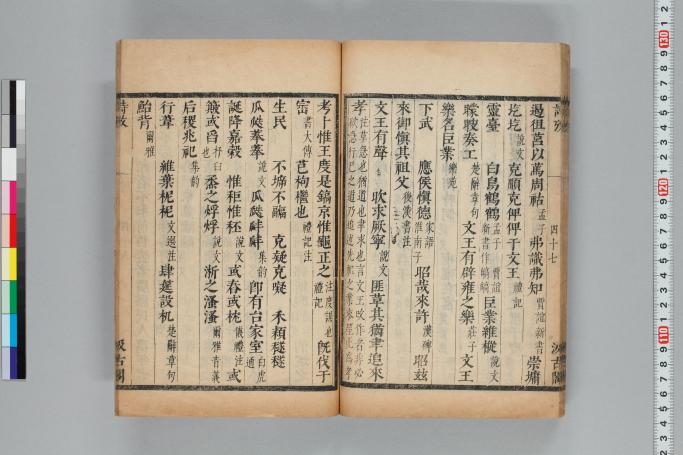 詩攷 四十七 汲古閣
遏徂莒以萬周祜孟子弗識弗知賈誼新書崇墉
圪圪說文克順克俾俾于文王禮記
靈臺 白鳥鶴鶴孟子 賈誼新書作皜皜臣業維樅說文
矇瞍奏工楚辭章句文王有辟雍之樂莊子文王
樂名臣業
下武 應侯愼德家語 淮南子昭哉來許漢碑昭茲
來御愼其祖父後漢書注
文王有聲 欥求厥寧說文匪革其猶聿追來
孝
考卜惟王度是鎬京惟龜正之 禮記旣伐于
崇書大傳芑枸檵也禮記注
生民 不坼不疈 克疑克嶷 禾穎穟穟
瓜瓞菶菶說文瓜瓞唪唪集韻卽有台家室白虎通
誕降嘉穀 惟秬惟秠說文或舂或枕儀禮注或
簸或舀 烝之烰烰說文淅之溞溞爾雅音義
后稷兆祀集韻
行葦 維葉柅柅文選注肆筵設机楚辭章句
鮐背爾雅
詩攷 汲古閣